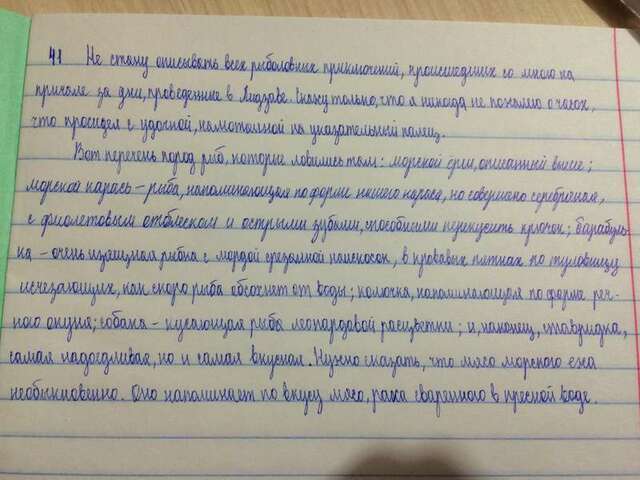 41 Не стану описывать всех рыболовных приключений, происшедших со мною на
причале за дни, проведенные в Лидзаве. Скажу только, что я никогда не пожалею о часах,
что просидел с удочкой, намотанной на указательный палец.
Вот перечень пород рыб, которые ловились там: морской ёрш, описанный выше;
морской карась - рыба, напоминающая по форме нашего карася, но совершено серебреная,
с фиолетовым отблеском и острыми зубами, способными перекусить крючок; барабуль-
ка - очень изящная рыбка с мордой срезанной наискосок, в кровавых пятнах по туловищу
исчезающих, как скоро рыба обсохнет от воды; колючка, напоминающая по форме реч-
ного окуня; собака - кусающая рыба леопардовой расцветки; и, наконец, ставридка,
самая надоедливая, но и самая вкусная. Нужно сказать, что мясо морского ежа
необыкновенно. Оно напоминает по вкусу мясо, рака сваренного в пресной воде.